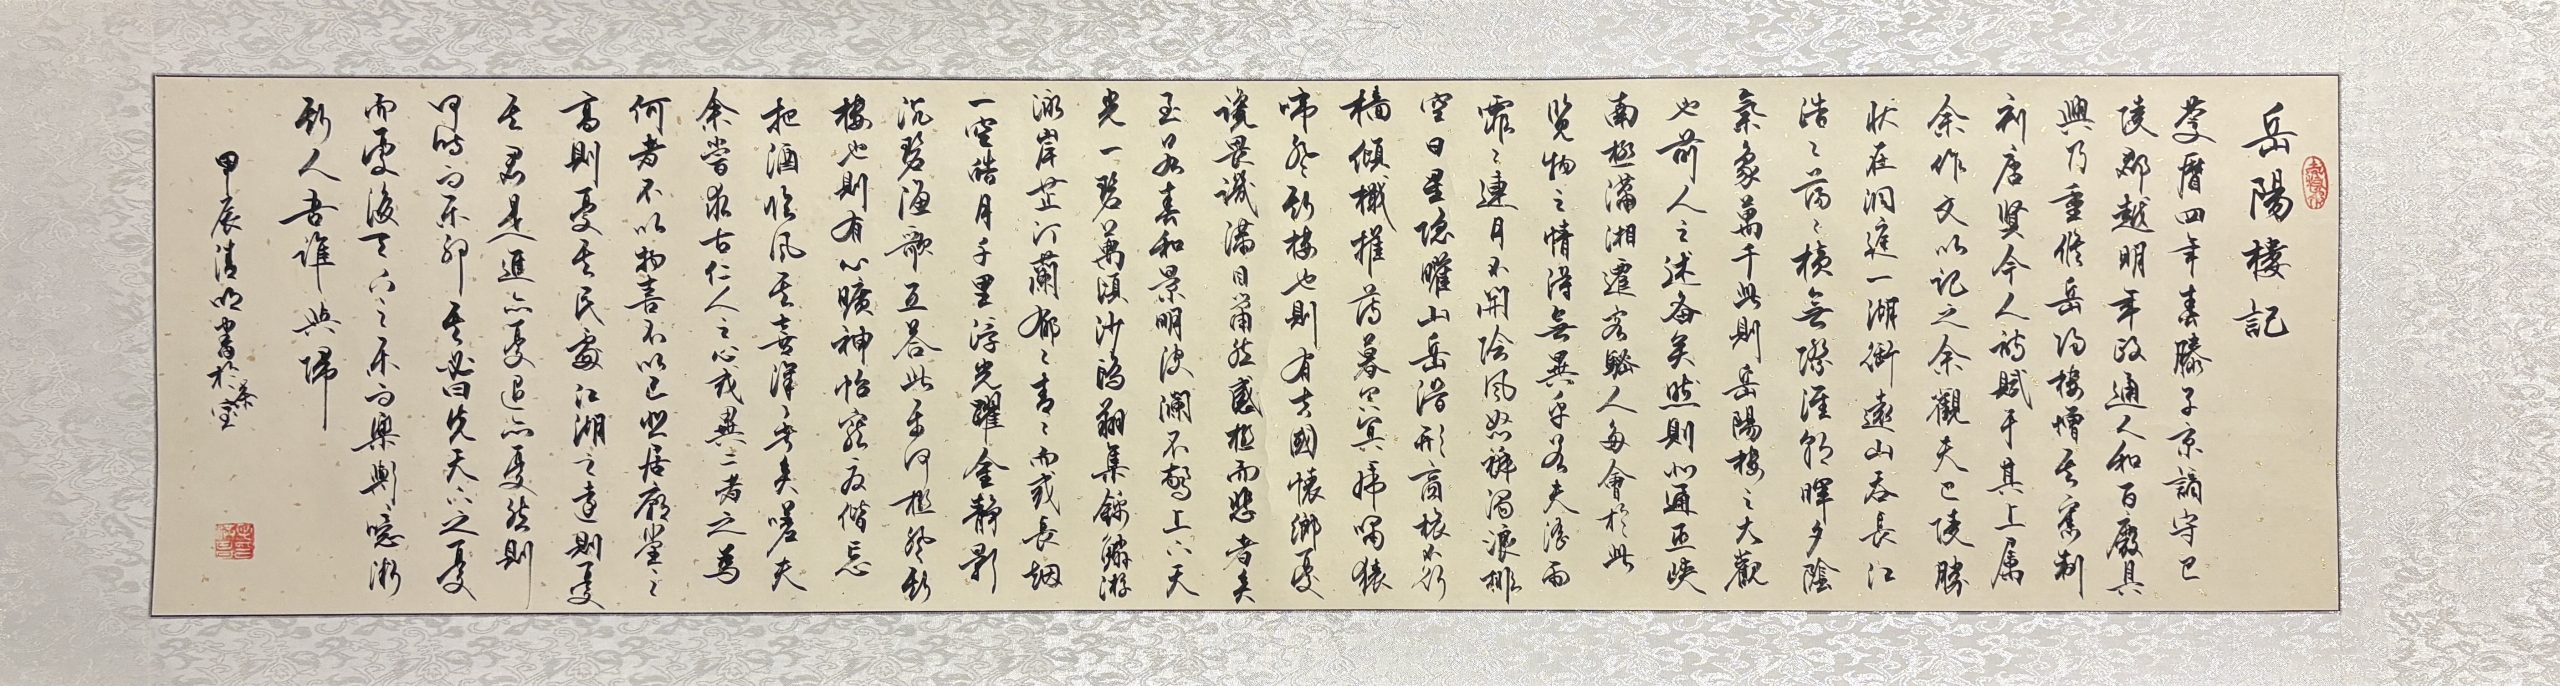 岳陽樓記
慶曆四年春滕子京謫守巴
陵郡越明年政通人和百廢具
興乃重修岳陽樓增其舊制
刻唐賢今人詩賦于其上屬
余作文以記之余觀夫巴陵勝
狀在洞庭一湖銜遠山吞長江
浩〻蕩〻橫無際涯朝暉夕陰
氣象萬千此則岳陽樓之大觀
也前人之述備矣然則北通巫峽
南極瀟湘遷客騷人多會於此
覽物之情得無異乎若夫淫雨
霏〻連月不開陰風怒號濁浪排
空日星隱曜山岳潛形商旅不行
檣傾檝摧薄暮冥冥虎嘯猿
啼登斯樓也則有去國懷鄉憂
讒畏譏滿目蕭然感極而悲者矣
至若春和景明波瀾不驚上下天
光一碧萬頃沙鷗翔集錦鱗游
泳岸芷汀蘭郁〻青〻而或長烟
一空皓月千里浮光躍金靜影
沉璧漁歌互答此樂何極登斯
樓也則有心曠神怡寵辱偕忘
把酒臨風其喜洋〻者矣嗟夫
余嘗求古仁人之心或異二者之為
何者不以物喜不以己悲居廟堂之
高則憂其民處江湖之遠則憂
其君是進亦憂退亦憂然則
何時而樂耶其必曰先天下之憂
而憂後天下之樂而樂歟噫微
斯人吾誰與歸
甲辰清明書於茶室